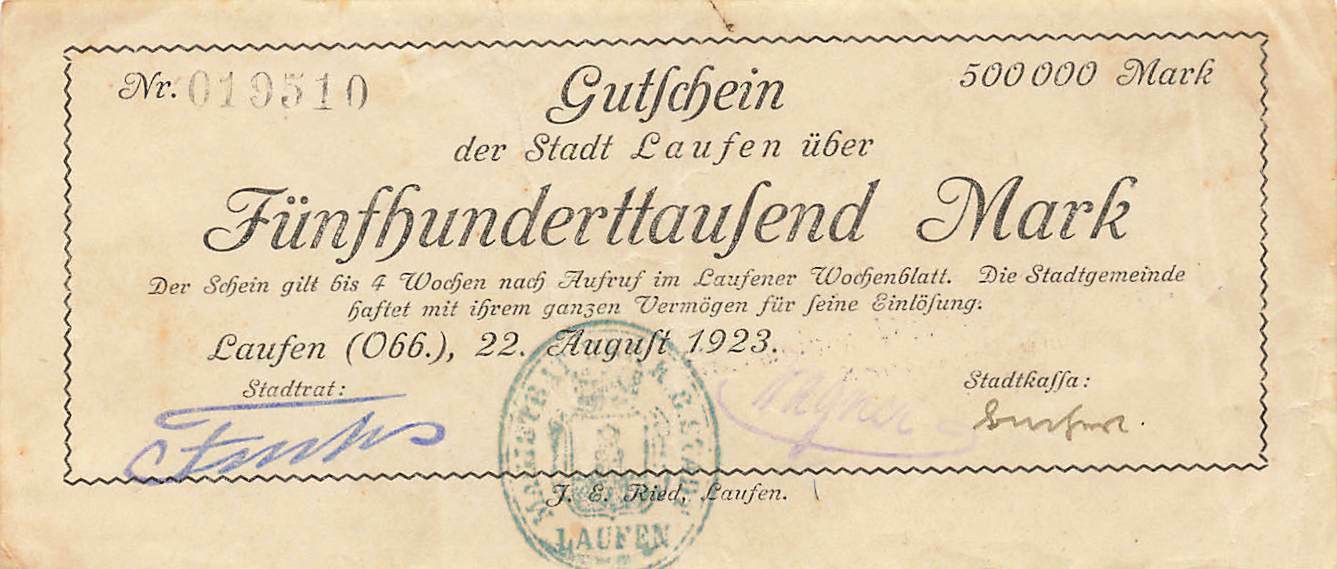 Nr. 019510
Gutſchein
500 000 Mark
der Stadt Laufen über
Fünfhunderttauſend Mark
Der Schein gilt bis 4 Wochen nach Aufruf im Laufener Wochenblatt. Die Stadtgemeinde
haftet mit ihrem ganzen Vermögen für ſeine Einlöſung.
Laufen (Obb.), 22. Auguſt 1923.
Stadtrat:
Stadtkaſſa:
J. E. Ried, Laufen.
LAUFEN